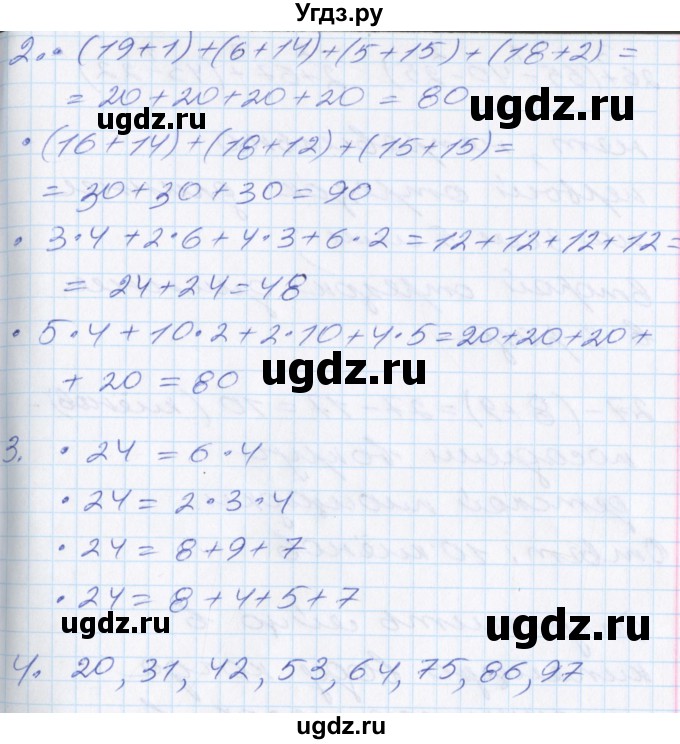 Угдз.ру
2. • (19+1)+(6+14)+(5+15)+(18+2) =
= 20+20+20+20 = 80
ugdz.ru
ugdz.ru
• (16+14)+(18+12)+(15+15)=
= 30+30+30=90
ugdz.ru
ugdz.ru
• 3•4+2•6+4•3+6•2=12+12+12+12=
= 24+24=48
• 5•4+10•2+2•10+4•5=20+20+20+
+ 20 = 80
ugdz.ru
ugdz.ru
3. • 24 = 6•4
ugdz.ru
• 24 = 2•3•4
ugdz.ru
• 24 = 8+9+7
• 24 = 8+4+5+7
ugdz.ru
ugdz.ru
4. 20, 31, 42, 53, 64, 75, 86, 97
ugdz.ru